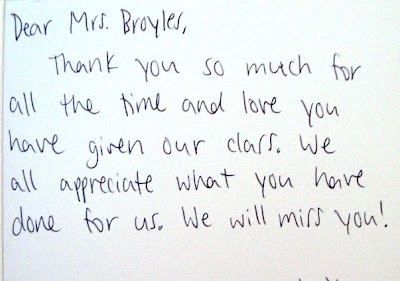 Dear Mrs. Broyles,
Thank you so much for
all the time and love you
have given our class. We
all appreciate what you have
done for us. We will miss you!